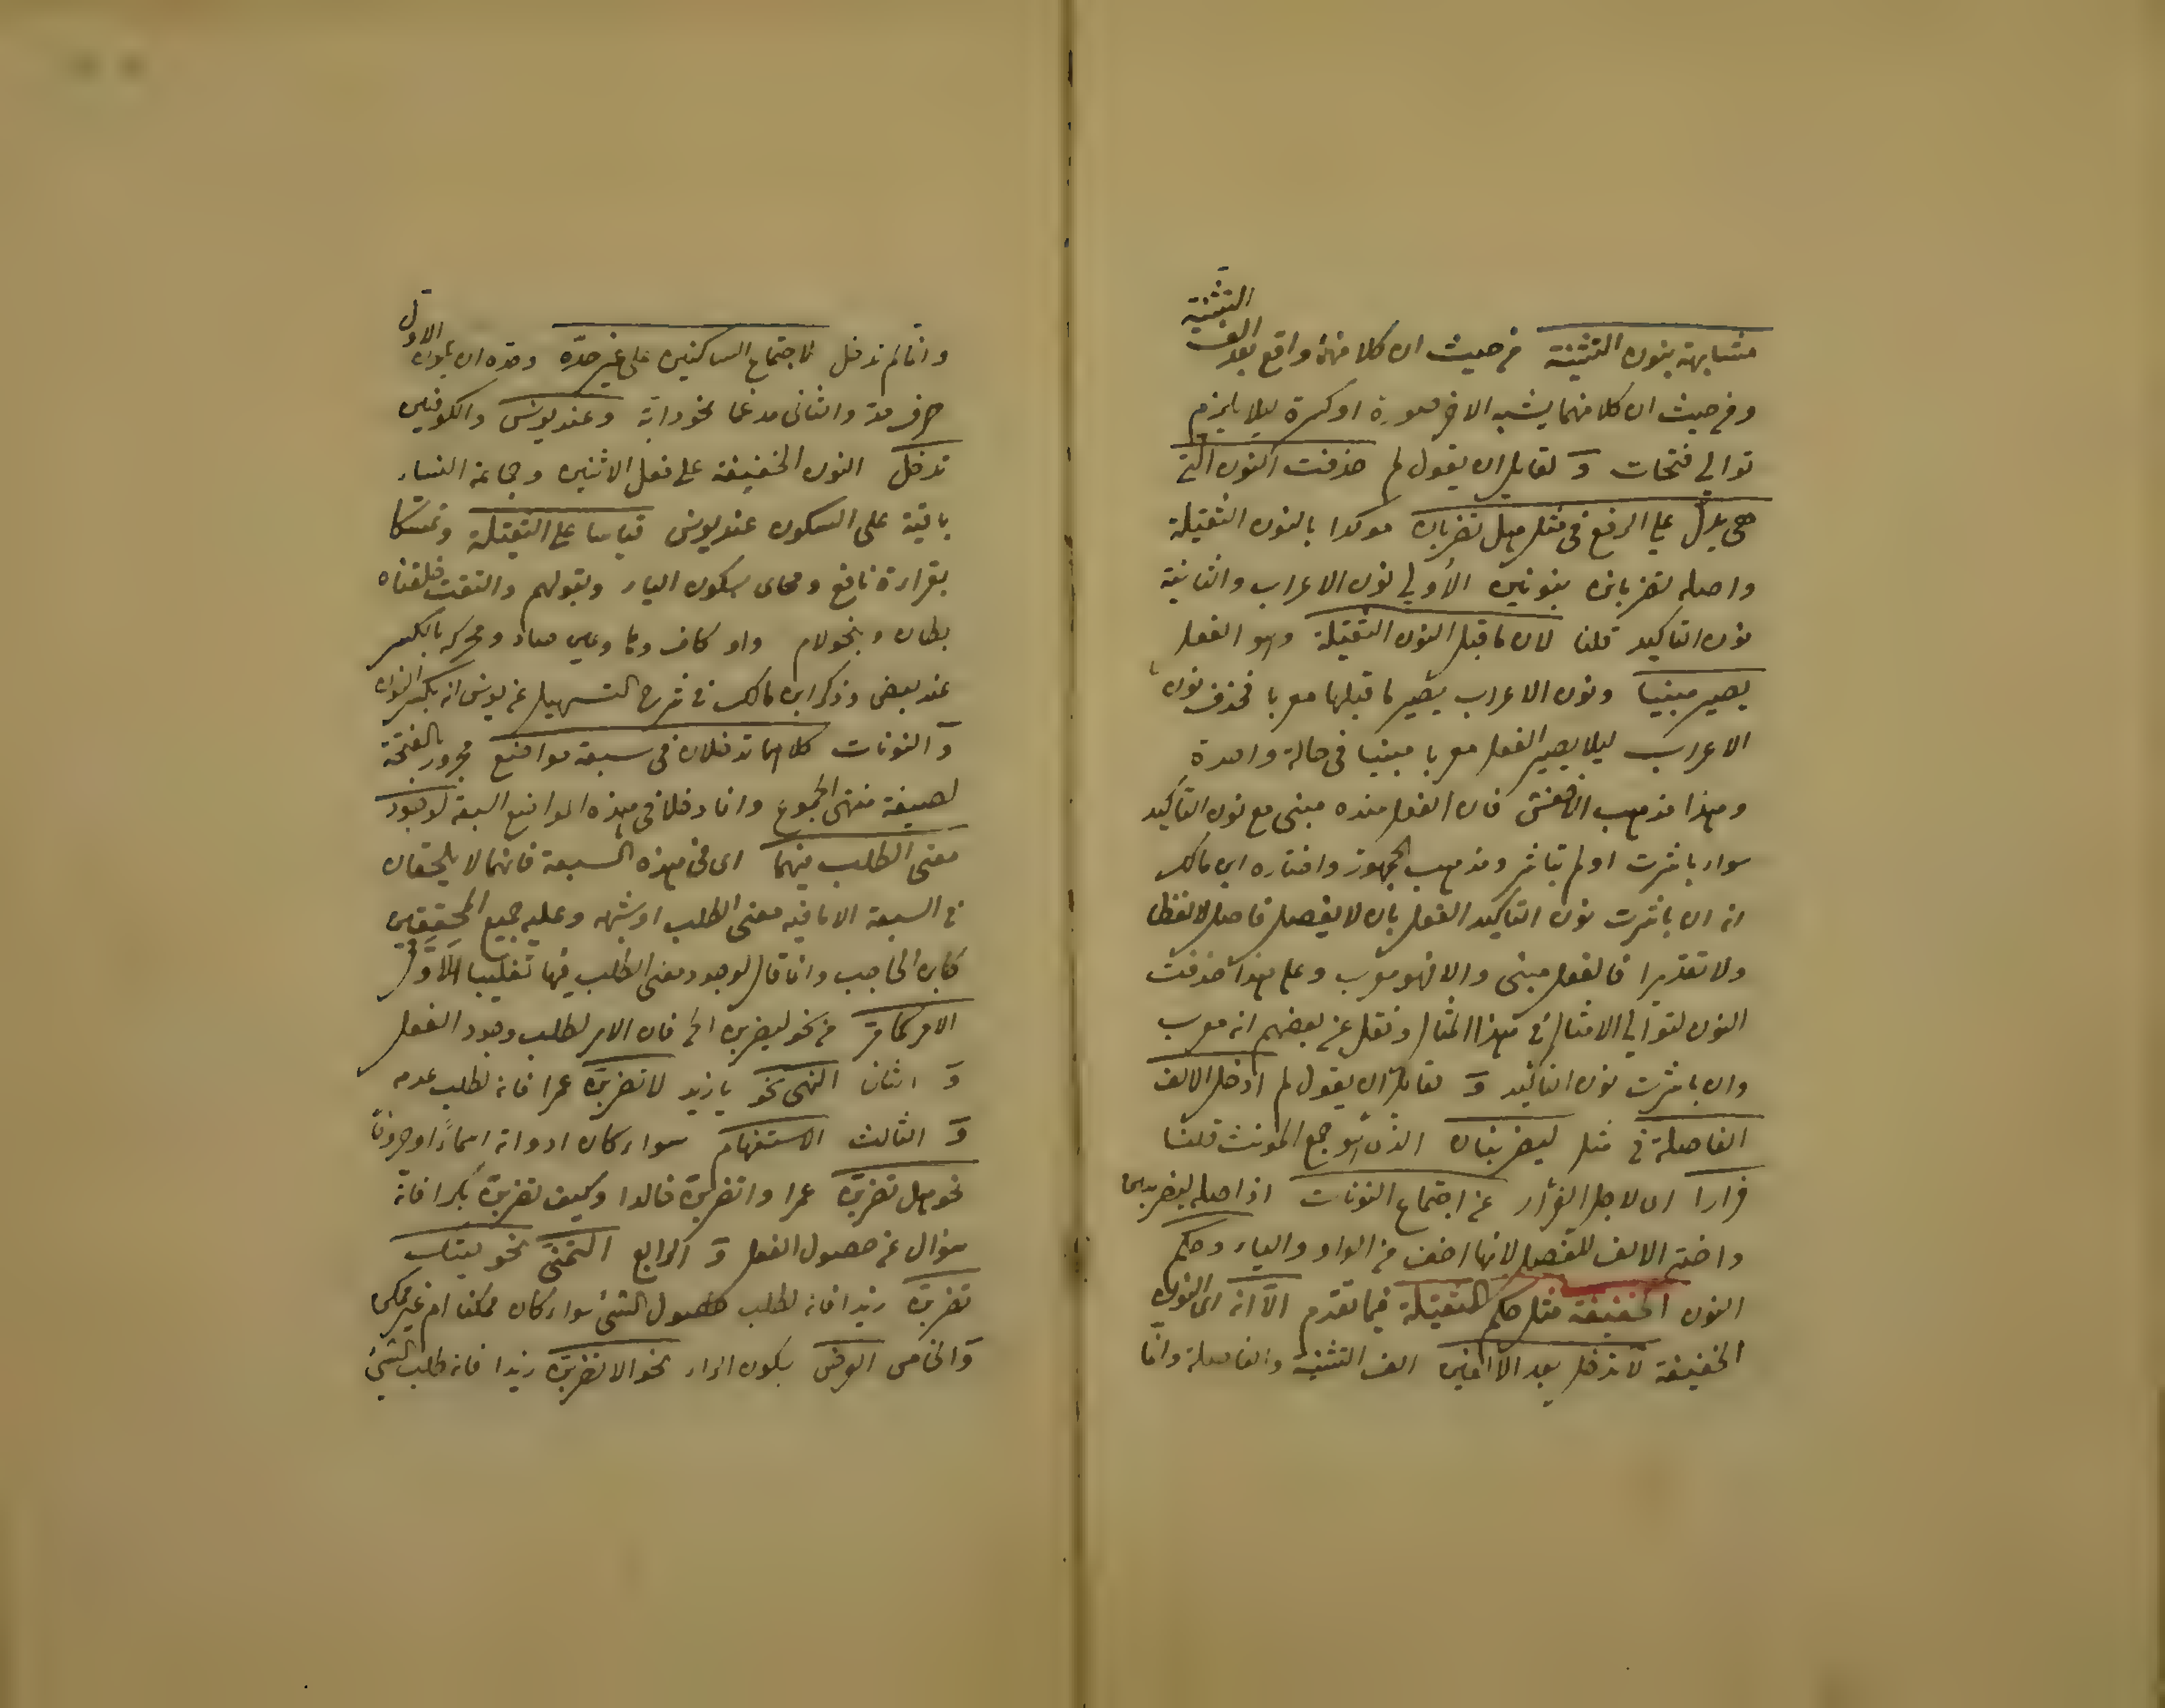 مشابهة بنون التثنية من حيث ان كلا منها واقع بعد الف التثنية
ومن حيث ان كلا منهما يشبه الاخر صورة او كسرة ليلا يلزم
توالي فتحات و لقايل ان يقول لم حذفت النون التي
هي يدل علي الرفع في مثل هل تضربان موكدا بالنون الثقيلة
واصله تضربانن بنونين الأولي نون الاعراب والثانية
نون التاكيد قلنا لان ما قبل النون الثقيلة وهو الفعل
يصير مبنيا ونون الاعراب يصير ما قبلها معربا فحذف نون
الاعراب ليلا يصير الفعل معربا مبنيا في حالة واحدة
وهذا مذهب الاخفش فان الفعل عنده مبنى مع نون التاكيد
سواء باشرت او لم تباشر ومذهب الجمهور واختاره ابن مالك
انه ان باشرت نون التاكيد الفعل بان لا يفصل فاصل لا لفظا
ولا تقديرا فالفعل مبنى والا فهو معرب وعلى هذا حذفت
النون لتوالي الامثال في هذا المثال ونقل عن بعضهم انه معرب
وان باشرت نون التاكيد و لقايل ان يقول لم ادخل الالف
الفاصلة في مثل ليضربنان الذى هو جمع المونث قلنا
فرارا اى لاجل الفرار عن اجتماع النونات اذ اصله
واختير الالف للفصل لانها اخف من الواو والياء وحكم
النون الخفيفة مثل حكم الثقيلة فيما تقدم الّا انه اى النون
الخفيفة لا تدخل بعد الالفين الف التثنية والفاصلة وانما
وانما لم تدخل لاجتماع الساكنين على غير حدّه وحدّه ان يكون الاول
حرف مد والثانى مدغما نحو دابّة وعند يونس والكوفيين
تدخل النون الخفيفة على فعل الاثنين وجماعة النساء
باقية على السكون عند يونس قياسا على الثقيلة وتمسكا
بقراءة نافع ومحياى بسكون الياء وبقولهم والتقت حلقتاه
بطان وبنحو لام واو كاف وها وعين صاد ومحركة بالكسر
عند بعض وذكر ابن مالك في شرح التسهيل عن يونس انه بكسر النون
و النونات كلاهما تدخلان في سبعة مواضع مجرور بالفتحة
لصيغة منتهى الجموع وانما دخلا في هذه المواضع السبعة لوجود
معنى الطلب فيهما اى في هذه السبعة فانهما لا يلحقان
في السبعة الا ما فيه معنى الطلب او شبهه وعليه جميع المحققين
كابن الحاجب وانما قال لوجود معنى الطلب فيها تغليبا الاوّل
الامر كما مرّ من نحو ليضربن الخ فان الامر لطلب وجود الفعل
و الثانى النهى نحو يا زيد لا تضربنّ عمرا فانه لطلب عدمه
و الثالث الاستفهام سواء كان ادواته اسماءً او حروفا
نحو هل تضربنّ عمرا واتضربنّ خالدا وكيف تضربنّ بكرا فانه
سؤال عن حصول الفعل و الرابع التمنّى نحو ليتك
تضربنّ زيدا فانه لطلب حصول الشئ سواء كان ممكنا ام غير ممكن
و الخامس العرض بسكون الراء نحو الا تضربنّ زيدا فانه طلب الشئ